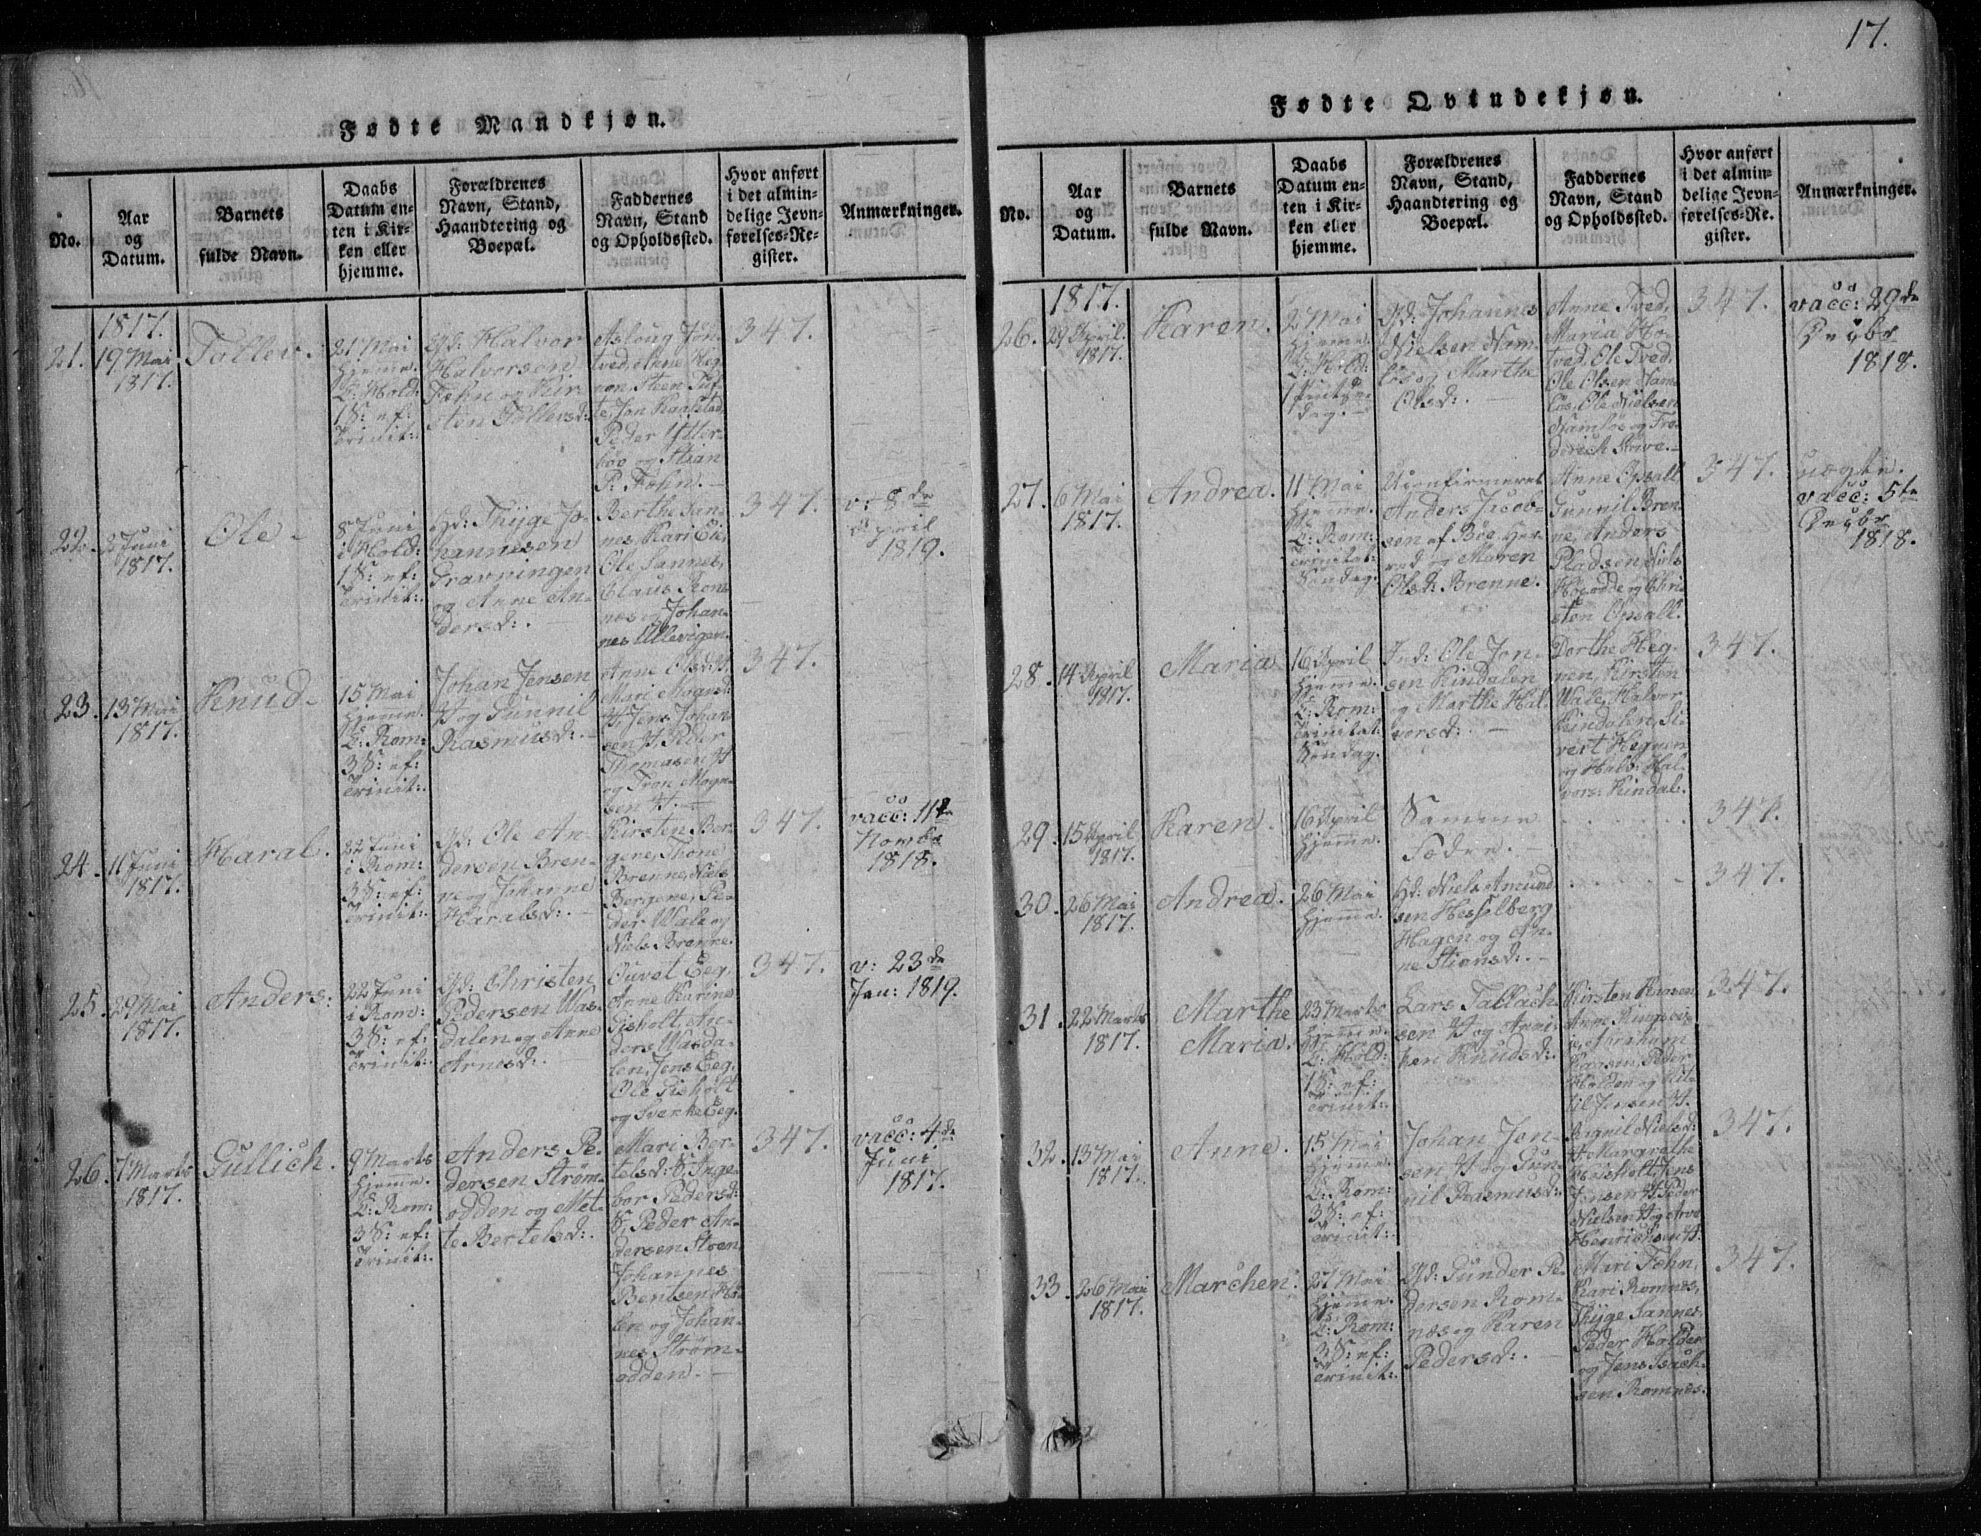 17.
Fødte Mandkjøn.
No.
Aar
og
Datum.
Barnets
fulde Navn.
Daabs
Datum en-
ten i Kir-
ken eller
hjemme.
Forældrenes
Navn, Stand,
Haandtering og
Boepæl.
Faddernes
Navn, Stand
og Opholdssted.
Hvor anført
i det almin-
delige Jevn-
førelses-Re-
gister.
Anmærkninger.
1817.
21.
19 Mai
1817.
Tollev.
21 Mai
hjemme.
L: Hold:
1 S: ef:
Trinit:
Gd: Halvor
Halvorsen
Fehn og Kir-
sten Tollevsd:
Aasloug
Peder Ytter-
bøe og Stian
P. Fehn.
347.
22.
2 Juni
1817.
Ole
8 Juni
i Hold:
1 S: ef:
Trinit:
Hd: Thyge Jo-
hannesen
Gravningen
og Anne An-
dersd:
Berthe San-
nes, Kari Eie,
Ole Sannes,
Claus Rom-
nes og Johan-
nes Ullevigen.
347.
v: 8de
April
1819.
23.
13 Mai
1817.
Knud
15 Mai
hjemme.
L: Rom:
3 S: ef:
Trinit:
Johan Jensen
H og Gunnil
Rasmusd:
Anne Olsd: H.
Mari Mogensd:
H. Jens Johan-
sen H. Peder
Thomasen H
og Tron Mogn-
sen H.
347.
24.
11 Juni
1817.
Haral.
22 Juni
i Rom:
3 S: ef:
Trinit:
Gd: Ole An-
dersen Bren-
ne og Johanne
Haralsd:
Kirsten Ber-
gene, Thone
Brenne, Niels
Bergene, Pe-
der Wale og
Niels Brenne.
347.
vacc: 11te
Novmbr
1818.
25.
29 Mai
1817.
Anders.
22 Juni
i Rom:
3 S: ef:
Trinit:
Gd: Christen
Pedersen Was-
dalen og Anne
Arnesd:
Ouvet Eeg,
Anne Karine
Gisholt, An-
ders Wasda-
len, Jens Eeg,
Ole Gisholt
og Sverke Eeg.
347.
v: 23de
Jan: 1819.
26.
7 Marts
1817.
Gullich.
9 Marts
hjemme.
L: Rom:
3 S: ef:
Trinit:
Anders Pe-
dersen Strøm-
odden og Met-
te Bertelsd:
Mari Ber-
telsd: Inge-
bor Pedersd:
S. Peder An-
dersen Steen,
Johannes
Bentsen Ha-
len og Johan-
nes Strøm-
odden.
347.
vacc: 4de
Juni
1817.
Fødte Qvindekjøn.
No.
Aar
og
Datum.
Barnets
fulde Navn.
Daabs
Datum en-
ten i Kir-
ken eller
hjemme.
Forældrenes
Navn, Stand,
Haandtering og
Boepæl.
Faddernes
Navn, Stand
og Opholdssted.
Hvor anført
i det almin-
delige Jevn-
førelses-Re-
gister.
Anmærkninger.
1817.
26.
29 April
1817.
Karen.
2 Mai
hjemme.
L: Hold:
dag.
Gd: Johannes
Nielsen Nam-
løs og Marthe
Olsd:
Anne Tved,
Maria Ho-
tved, Ole Tved,
Ole Olsen Nam-
løs, Ole Nielsen
Namløs og Fre-
derich
347.
vacc: 29de
1818.
27.
6 Mai
1817.
Andrea.
11 Mai
hjemme.
L: Rom:
Trinitat:
Søndag.
Uconfirmeret
Anders Jacob-
sen af Bøe Her-
red og Maren
Olsd: Brenne.
Anne Opsall,
Gunnil Bren-
ne, Anders
Pladsen, Niels
og Chri-
sten Opsall.
347.
uægte.
vacc: 5te
1818.
28.
14 April
1817.
Maria
16 April
hjemme.
L: Rom:
Trinitat:
Søndag.
Ind: Ole Jen-
sen Kindalen
og Marthe Hal-
vorsd:
Dorthe Heg-
nen, Kirsten
Wale, Halvor
Kindalen, Si-
vert Hegnen
og Halv: Hal-
vors: Kindal.
347.
29.
15 April
1817.
Karen.
16 April
hjemme.
Samme
Fødsel.
347.
30.
26 Mai
1817.
Andrea.
26 Mai
hjemme.
Hd: Niels Amund-
sen Hesselberg
Hagen og An-
ne Stiansd:
347.
31.
22 Marts
1817.
Marthe
Maria.
23 Marts
hjemme.
L: Hold:
1 S: ef:
Trinit:
Lars Tallach-
sen H og Anni-
ken Knudsd:
Kirsten Hansen,
Anne
Abraham
Hansen, Peder
Halden og Kit-
til Jensen H.
347.
32.
13 Mai
1817.
Anne.
15 Mai
hjemme.
L: Rom:
3 S: ef:
Trinit:
Johan Jen-
sen H og Gun-
nil Rasmusd:
Signil Nielsd:
H. Margrethe
Jens
Jensen H. Peder
Nielsen H og Arve
Henrichsen H.
347.
33.
26 Mai
1817.
Marchen.
27 Mai
hjemme.
L: Rom:
3 S: ef:
Trinit:
Gd: Gunder Pe-
dersen Rom-
næs og Karen
Pedersd:
Mari Fehn,
Kari Romnes,
Thyge Sannes,
Peder Halden
og Jens Isach-
sen Romnes.
347.